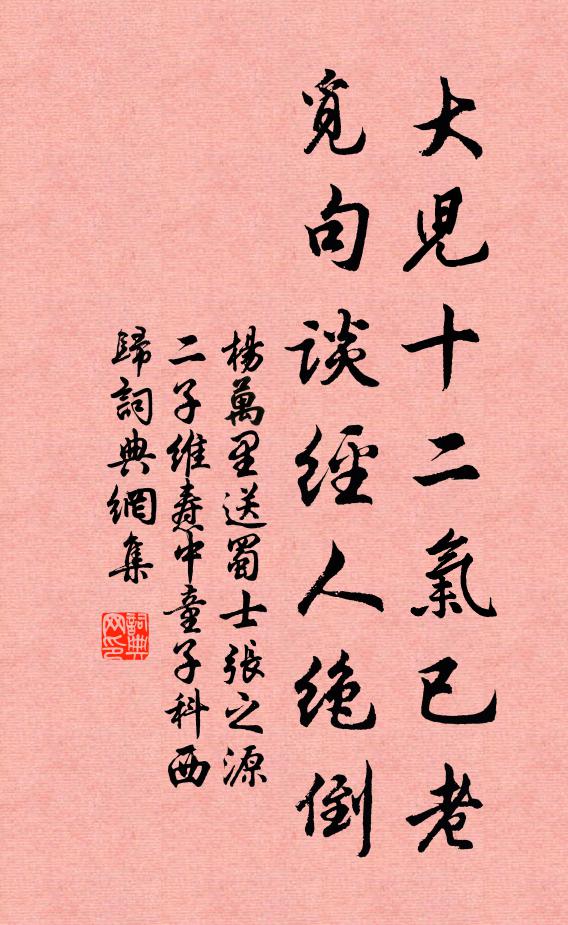 大兒十二氣已老
覓句談經人絕倒
楊萬里送蜀士張之源
二子維燾中童子科西
歸詞典網集
詞典
网印